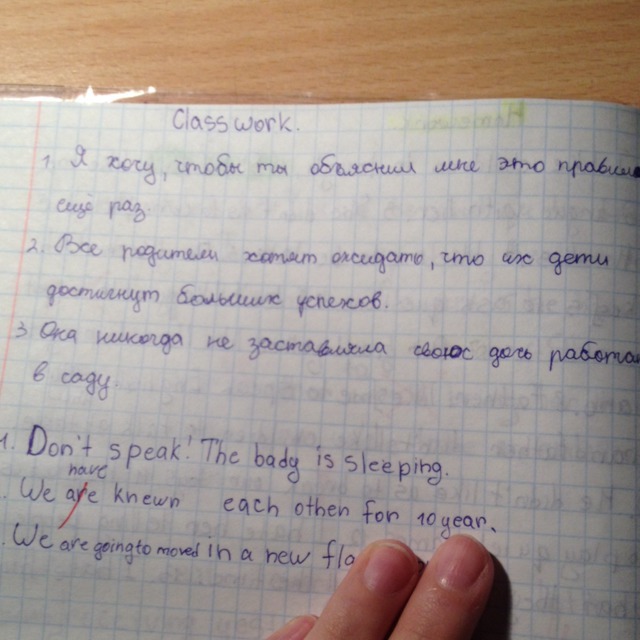 Classwork.
1. Я хочу, чтобы ты объяснил мне это правило
ещё раз.
2. Все родители хотят ожидать, что их дети
достигнут больших успехов.
3 Она никогда не заставляла свою дочь работа
в саду.
1. Don't speak! The bady is sleeping.
have
. We are knewn each othen for 10 year.
. We are going to moved in a new fla